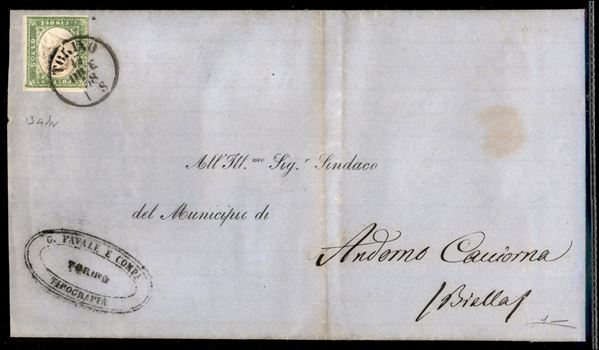 TORINO
DIC E
S
13Ah
All' Ill.mo Sig.r Sindaco
del Municipio di
Andorno Cacciorna
/Biella/
G. FAVALE E COMP.
TORINO
TIPOGRAFIA